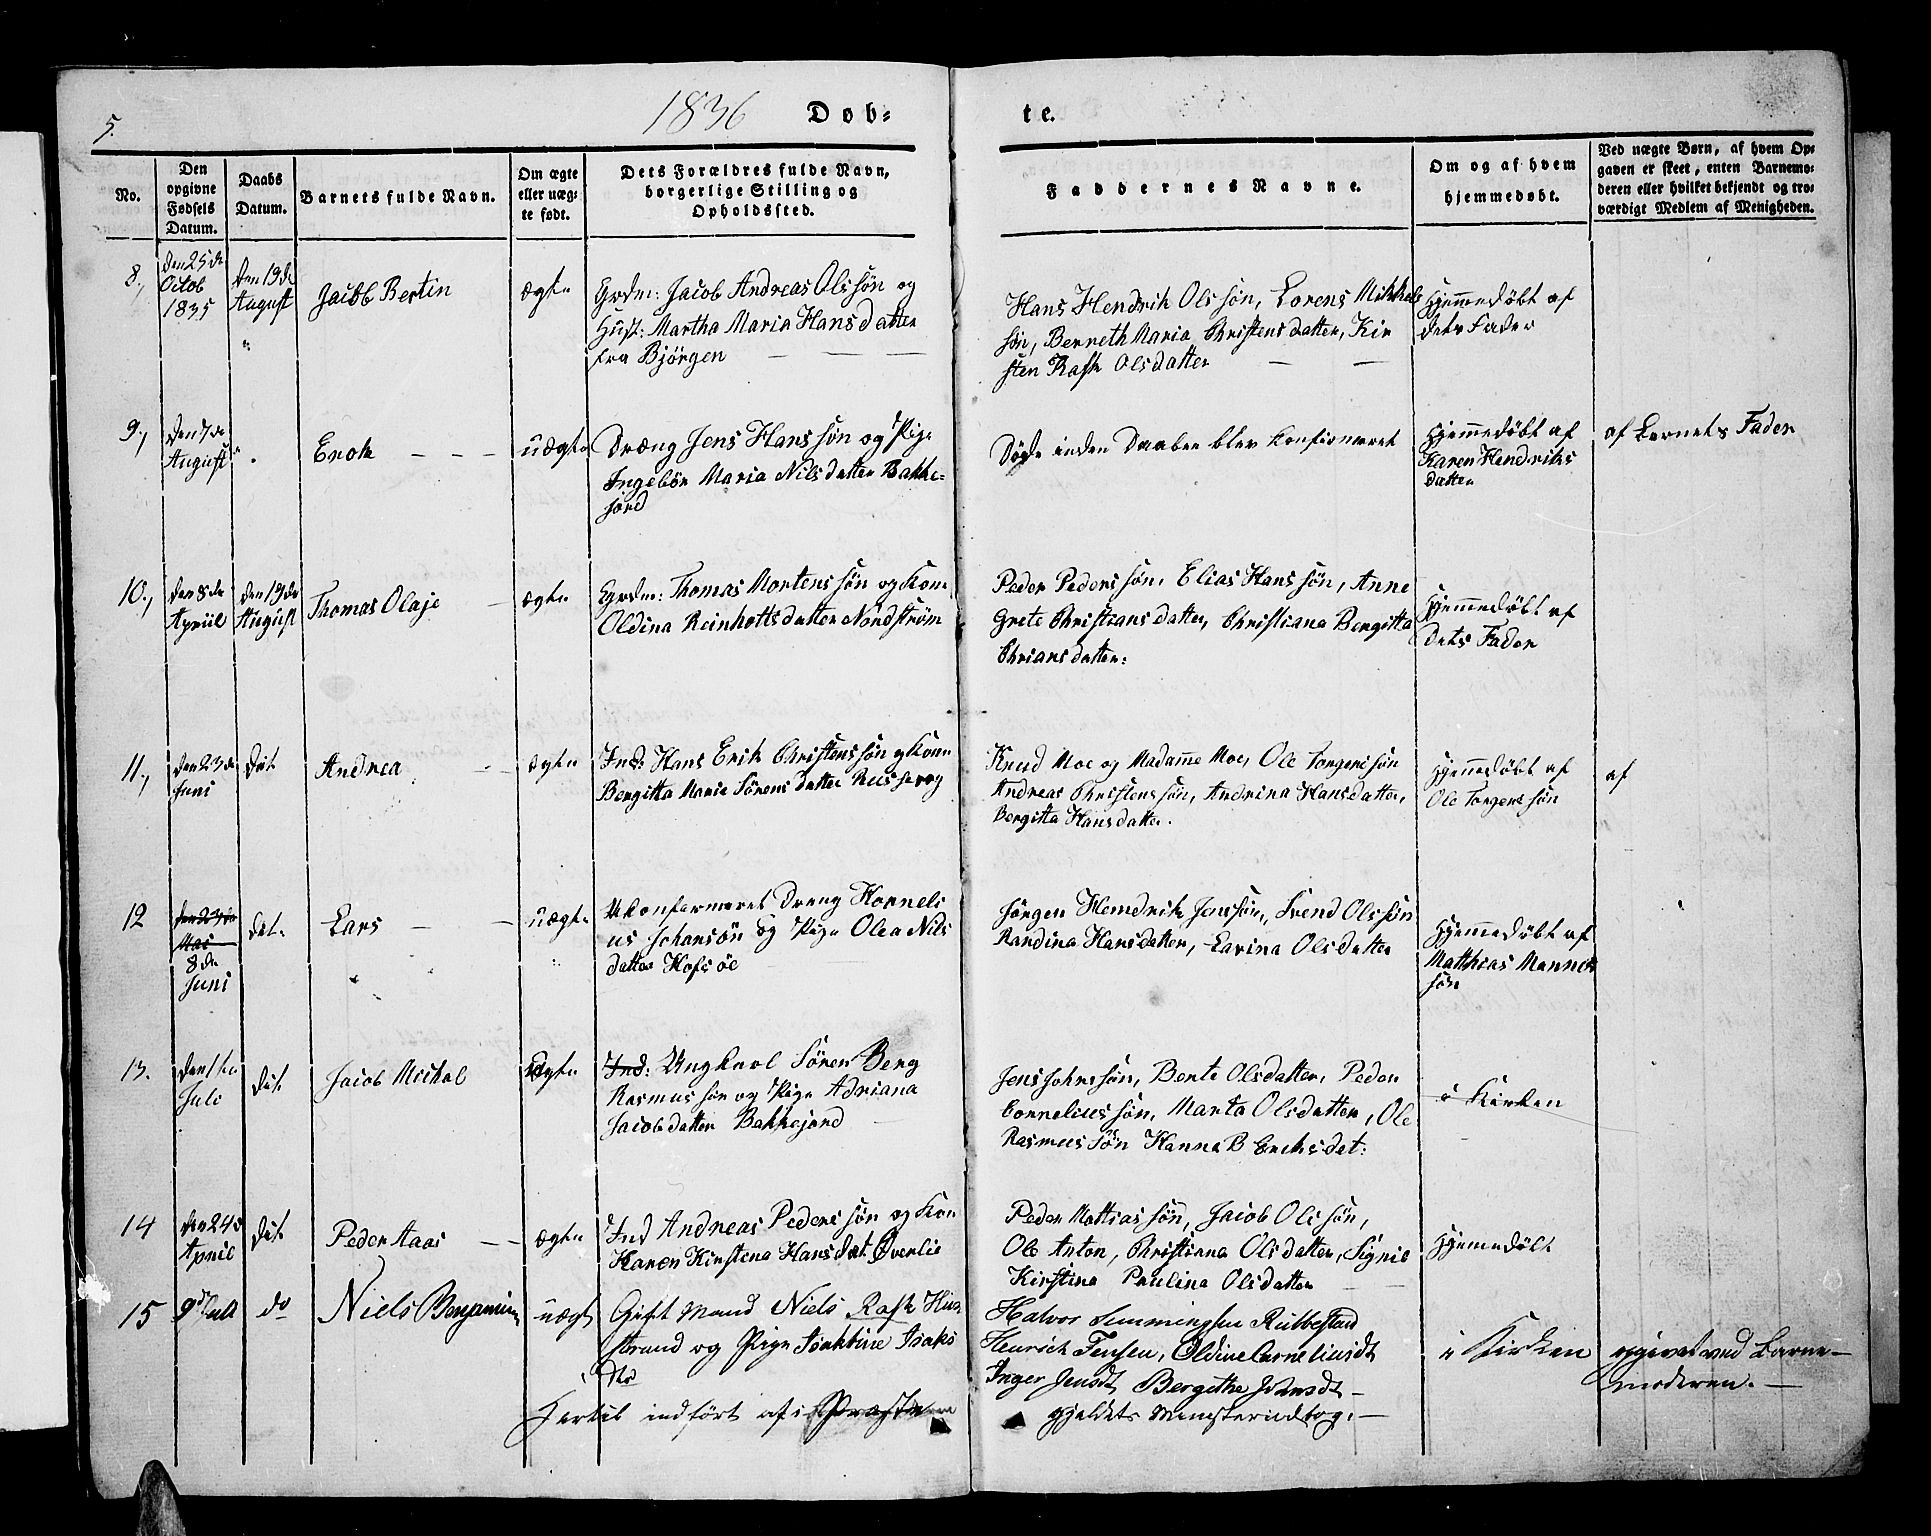 5.
1836 Døb-
te.
No.
Den opgivne Fødsels Datum.
Daabs Datum.
Barnets fulde Navn.
Om ægte eller uæg- te født.
Dets Forældres fulde Navn, borgerlige Stilling og Opholdssted.
Faddernes Navne.
Om og af hvem hjemmedøbt.
Ved uægte Børn, af hvem Op- gaven er skeet, enten Barnemo- deren eller hvilket bekjendt og tro- værdigt Medlem af Menigheden.
8.,
den 25de
Octob
1835
den 19de
August
Jacob Bertin
ægte
Grdm: Jacob Andreas Olssøn og
Hust: Martha Maria Hansdatter
fra Bjørgen
Hans Hendrik Olssøn, Lorens Mikkels
søn, Berneth Maria Christensdatter, Kir
sten Rask Olsdatter
hjemmedøbt af
dets Fader
9.,
den 7de
August
Enok
uægte
Dræng Jens Hanssøn og Pige
Ingebor Maria Nilsdatter Bakke-
jord
Døde inden Daaben blev konfirmeret
hjemmedøbt af
Karen Hendriks
datter
af Barnets Fader
10.,
den 8de
April
den 19de
August
Thomas Olaje
ægte
Grdm: Thomas Mortenssøn og Kone
Oldina Reinholtsdatter Nordstrøm
Peder Pederssøn, Elias Hanssøn, Anne
Grete Christiansdatter, Christiana Bergitta
Chriansdatter:
hjemmedøbt af
dets Fader
11.,
den 23de
Juni
Dat.
Andrea
ægte
Ind: Hans Erik Christenssøn og Kone
Bergitta Marie Sørensdatter Russevog
Knud Moe og Madamme Moe, Ole Torgerssøn
Andreas Christenssøn, Andrina Hansdatter,
Bergitta Hansdatter.
hjemmedøbt af
Ole Torgerssøn
af
12
den 23de
Mai
8de
Juni
Dat.
Lars
uægte
Ukonfermeret Dreng Korneli
us Johansøn og Pige Olea Nils
datter Hofsøe
Jørgen Hemdrik Jenssøn, Svend Olssøn
Randina Hansdatter, Larina Olsdatter
hjemmedøbt af
Matthias Mannes
søn
13.
den 1te
Juli
Dat.
Jacob Mickal
uægte
Ind: Ungkarl Søren Berg
Rasmussøn og Pige Adriana
Jacobsdatter Bakkejord
Jens Johnssøn, Bente Olsdatter, Peder
Corneliussøn, Marta Olsdatter, Ole
Rasmussøn Hanna B Eriksdat:
i Kirken
14
den 24de
April
Dat.
Peder Aaas
ægte
Ind Andreas Pederssøn og Kone
Karen Kirstena Hansdat Øverlie
Peder Mattiassønn, Jacob Olssøn,
Ole Anton, Christiana Olsdatter, Signil
Kirstina Paulina Olsdatter
hjemedøbt
15
9d Juli
do
Niels Benjamin
uægte
Gift Mand Niels Rask
strand og Pige Isaks
dtr
Halvor Simmingsen Rubbestad
Henrich Jensen, Oldine Corneliusdt
Inger Jensdt Bergethe Johnsdt –
i Kirken
opgivet ved Barne-
moderen. –
Hertil indført af i Præste
gjeldets Ministerialbog. –